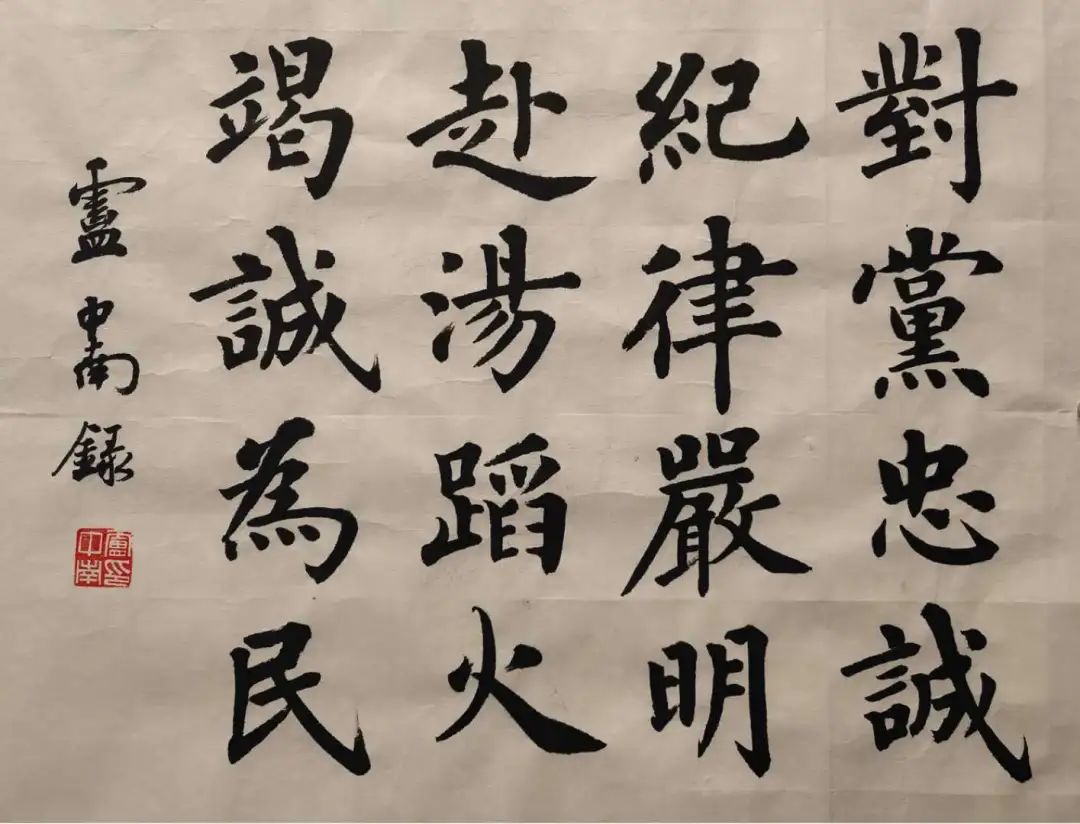 對黨忠誠
紀律嚴明
赴湯蹈火
竭誠為民
盧中南錄
盧中南印